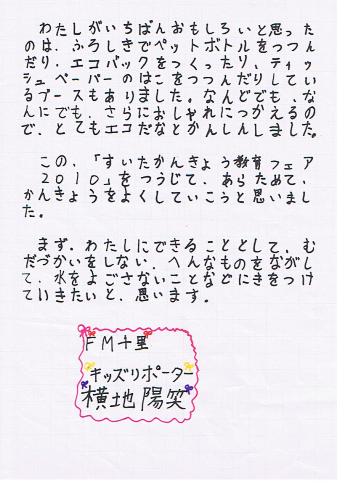 わたしがいちばんおもしろいと思った
のは、ふろしきでペットボトルをつつん
だり、エコバックをつくったり、ティッ
シュペーパーのはこをつつんだりしてい
るブースもありました。なんどでも、な
んにでも、さらにおしゃれにつかえるの
で、とてもエコだなとかんしんしました。
この、「すいたかんきょう教育フェア
2010」をつうじて、あらためて、
かんきょうをよくしていこうと思いまし
た。
まず、わたしにできることとして、む
だづかいをしない、へんなものをながし
て、水をよごさないことなどにきをつけ
ていきたいと、思います。
FM千里
キッズリポーター
横地陽笑